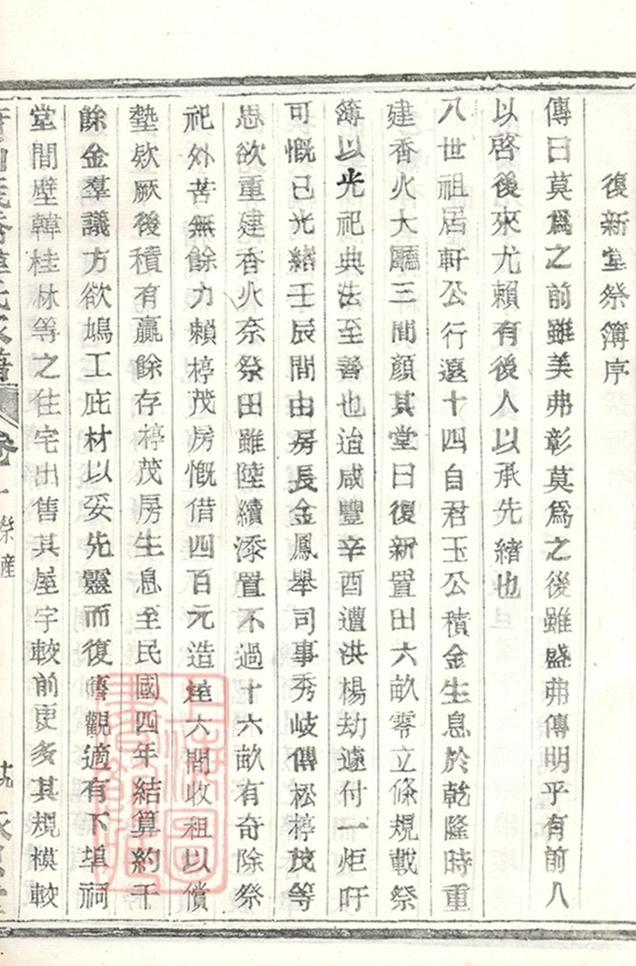 復新堂祭簿序
傳曰莫爲之前雖美弗彰莫爲之後雖盛弗傳明乎有前人
以啓後來尤賴有後人以承先緒也
八世祖居軒公行遠十四自君玉公積金生息於乾隆時重
建香火大廳三間顏其堂曰復新置田六畝零立條規載祭
簿以光祀典法至善也迨咸豐辛酉遭洪楊劫遽付一炬吁
可慨已光緒壬辰間由房長金鳳舉司事秀岐傳松椁茂等
思欲重建香火奈祭田雖陸續添置不過十六畝有奇除祭
祀外苦無餘力賴椁茂房慨借四百元造是大間收租以償
墊欵厥後積有贏餘存椁茂房生息至民國四年結算約千
餘金羣議方欲鳩工庇材以妥先靈而復舊觀適有下埴祠
堂間壁韓桂林等之住宅出售其屋宇較前更多其規模較
氏家譜 卷一 祭產